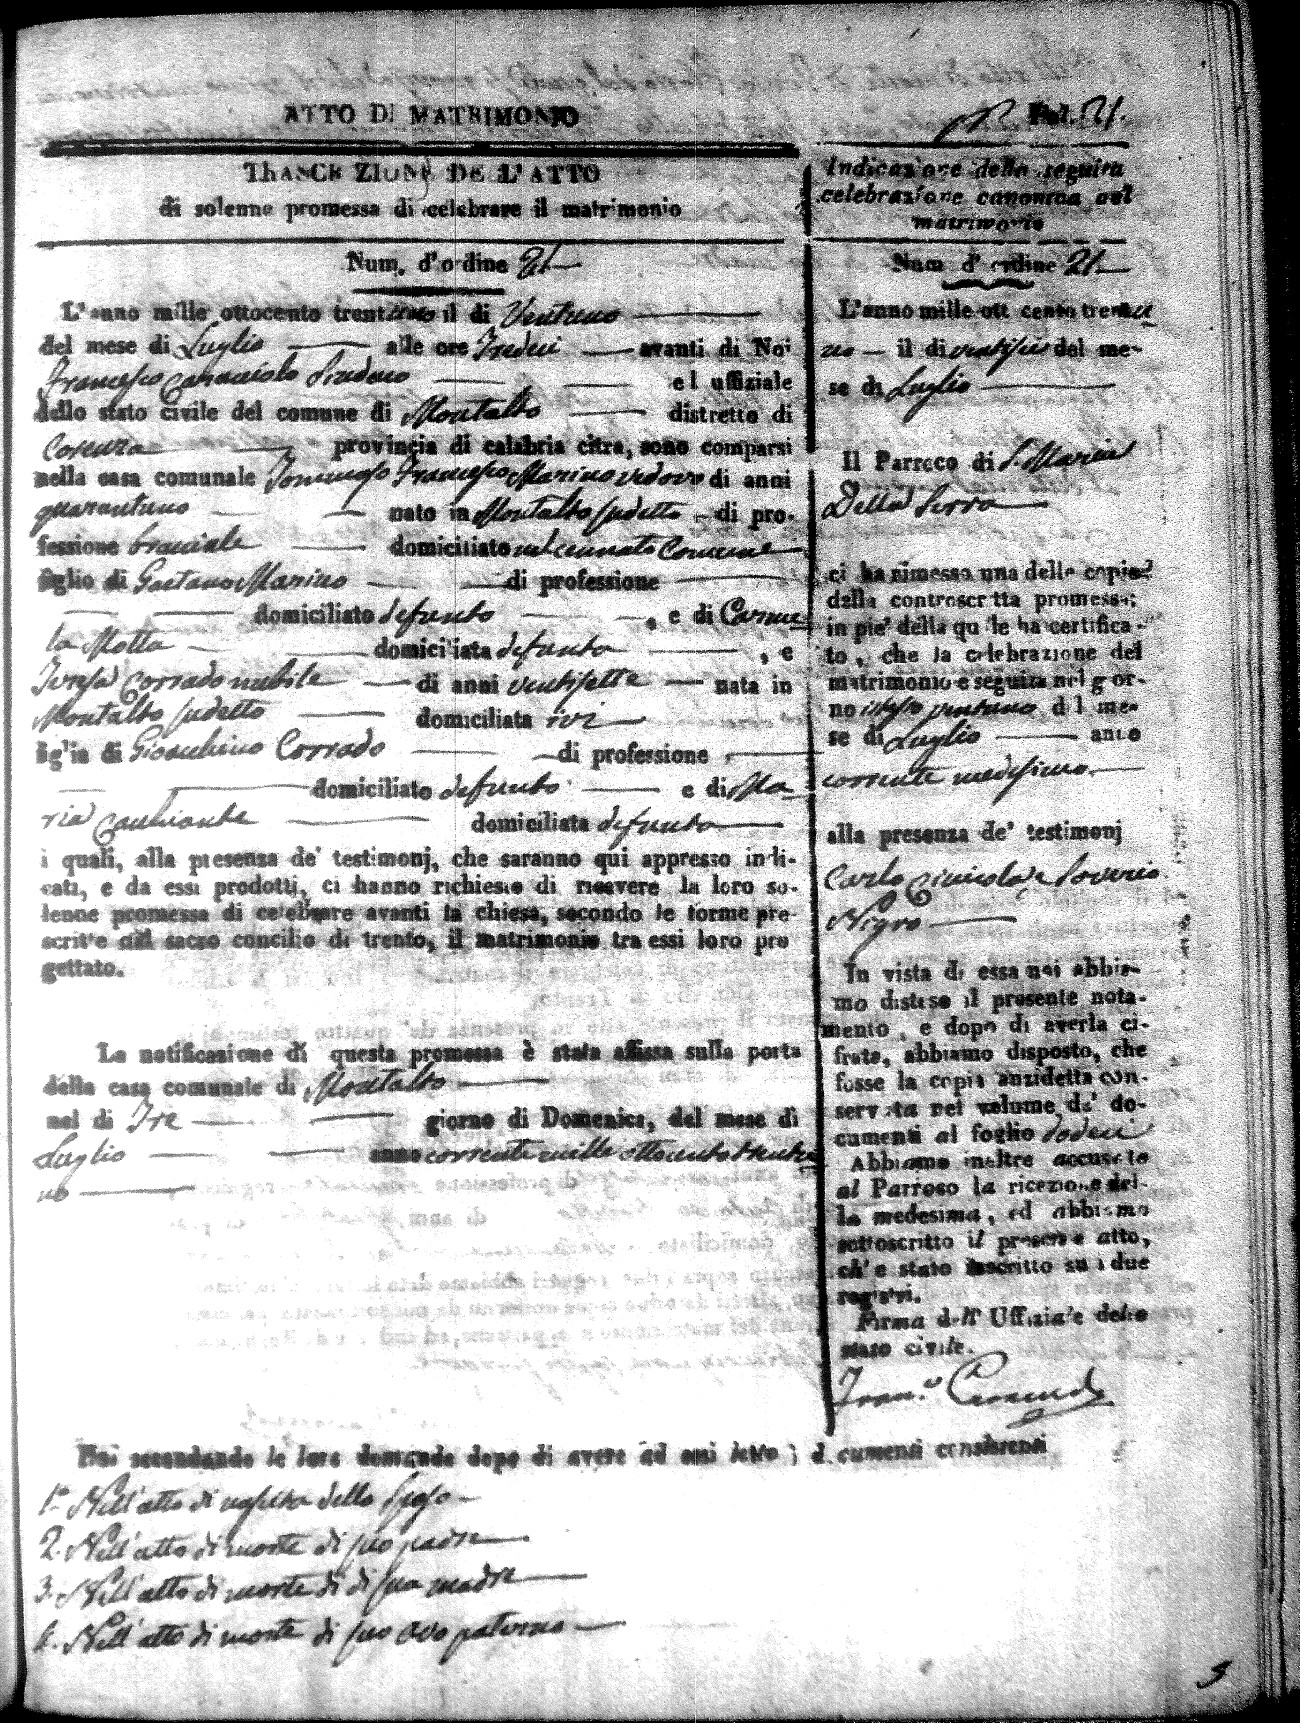 ATTO DI MATRIMONIO
Fol. 21.
TRASCRIZIONE DE L'ATTO
di solenne promessa di celebrare il matrimonio
Num. d'ordine 21
L'anno mille ottocento trentuno il di Ventuno
del mese di Luglio alle ore Tredeci avanti di Noi
Francesco Caracciolo Sindaco ed uffiziale
dello stato civile del comune di Montalto distretto di
Cosenza provincia di calabria citra, sono comparsi
nella casa comunale Tommaso Francesco Marino vedovo di anni
quarantuno nato in Montalto sudetto di pro-
fessione bracciale domiciliato nel cennato Comune
figlio di Gaetano Marino di professione
domiciliato defunto , e di Carme
la Motta domiciliata defunta , e
Teresa Corrado nubile di anni ventisette nata in
Montalto sudetto domiciliata ivi
figlia di Gioacchino Corrado di professione
domiciliato defunto e di Ma
ria domiciliata defunta
i quali, alla presenza de' testimonj, che saranno qui appresso indi-
cati, e da essi prodotti, ci hanno richiesto di ricevere la loro so-
lenne promessa di celebrare avanti la chiesa, secondo le forme pre-
scritte dal sacro concilio di trento, il matrimonio tra essi loro pro
gettato.
La notificazione di questa promessa è stata affissa sulla porta
della casa comunale di Montalto
nel di Tre giorno di Domenica, del mese di
Luglio anno corrente mille ottocento trentu
no
Indicazione della seguita
celebrazione canonica del
matrimonio
Num d'ordine 21
L'anno mille ott cento trentu
no il di del me-
se di Luglio
Il Parroco di S. Maria
Della Serra
ci ha rimesso una delle copie
della controscritta promessa;
in pie' della quale ha certifica-
to, che la celebrazione del
matrimonio e seguita nel gior-
no istesso ventuno del me-
se di Luglio anno
corrente medesimo.
alla presenza de' testimonj
Carlo e Saverio
Nigro
In vista di essa noi abbia-
mo disteso il presente nota-
mento, e dopo di averla ci-
frata, abbiamo disposto, che
fosse la copia anzidetta con-
servata nel volume de' do-
cumenti al foglio dodeci
Abbiamo inoltre accusato
al Parroco la ricezione del-
la medesima, ed abbiamo
sottoscritto il presente atto,
ch'e stato inscritto su i due
registri.
Firma dell' Uffiziale dello
stato civile.
Noi secondando le loro domande dopo di avere ad essi letto i documenti consistenti
1.° Nell'atto di nascita dello Sposo
2. Nell'atto di morte di suo padre
3. Nell'atto di morte di di sua madre
4. Nell'atto di morte di suo avo paterno